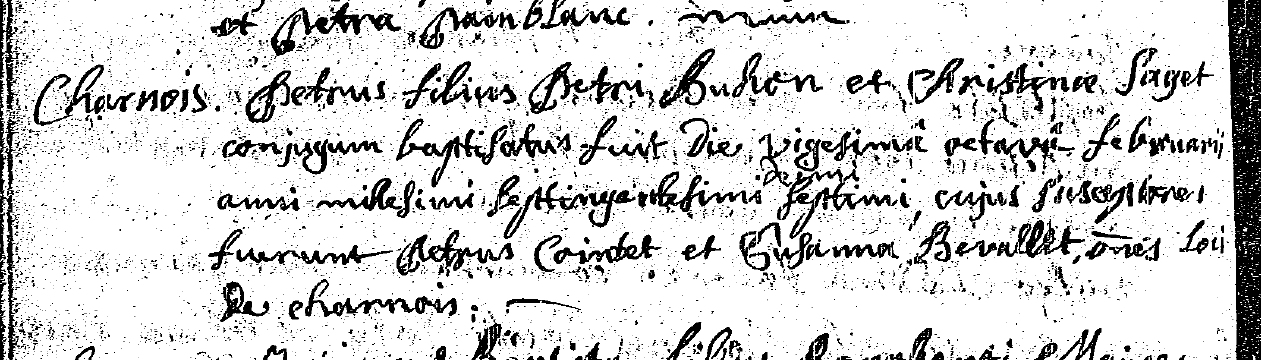 et Petra Painblanc.
Charnois. Petrus filius Petri Buchon et Christinæ Saget
conjugum baptisatus fuit die vigesimâ octavâ februarij
decimi
anni millesimi septingentesimi septimi, cujus susceptores
fuerunt Petrus Cointet et Susanna Bevallet, oēs loci
de charnois.
filius